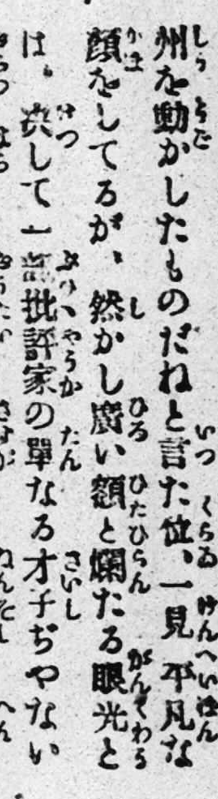 州を動かしたものだねと言た位、一見平凡な
顔をしてるが、然かし廣い額と爛たる眼光と
は、決して一部批評家の單なる才子ぢやない